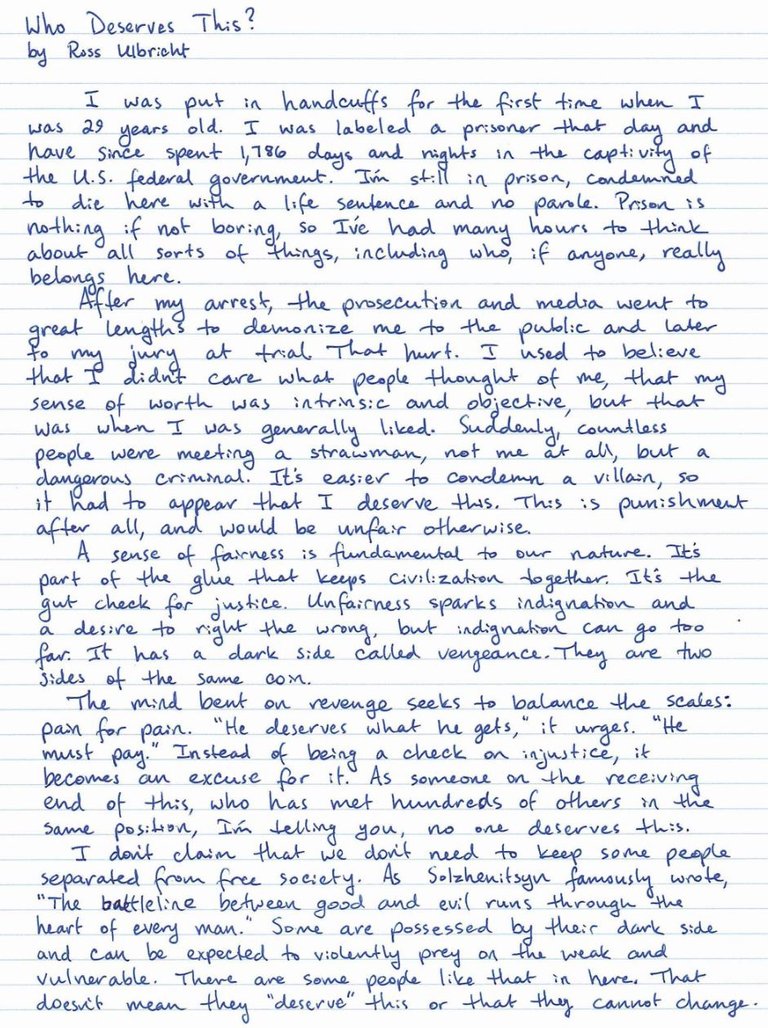 Who Deserves This?
by Ross Ulbricht
I was put in handcuffs for the first time when I
was 29 years old. I was labeled a prisoner that day and
have since spent 1,786 days and nights in the captivity of
the U.S. federal government. I'm still in prison, condemned
to die here with a life sentence and no parole. Prison is
nothing if not boring, so I've had many hours to think
about all sorts of things, including who, if anyone, really
belongs here.
After my arrest, the prosecution and media went to
great lengths to demonize me to the public and later
to my jury at trial. That hurt. I used to believe
that I didn't care what people thought of me, that my
sense of worth was intrinsic and objective, but that
was when I was generally liked. Suddenly, countless
people were meeting a strawman, not me at all, but a
dangerous criminal. It's easier to condemn a villain, so
it had to appear that I deserve this. This is punishment
after all, and would be unfair otherwise.
A sense of fairness is fundamental to our nature. It's
part of the glue that keeps civilization together. It's the
gut check for justice. Unfairness sparks indignation and
a desire to right the wrong, but indignation can go too
far. It has a dark side called vengeance. They are two
sides of the same coin.
The mind bent on revenge seeks to balance the scales:
pain for pain. "He deserves what he gets," it urges. "He
must pay." Instead of being a check on injustice, it
becomes an excuse for it. As someone on the receiving
end of this, who has met hundreds of others in the
same position, I'm telling you, no one deserves this.
I don't claim that we don't need to keep some people
separated from free society. As Solzhenitsyn famously wrote,
"The battleline between good and evil runs through the
heart of every man." Some are possessed by their dark side
and can be expected to violently prey on the weak and
vulnerable. There are some people like that in here. That
doesn't mean they "deserve" this or that they cannot change.